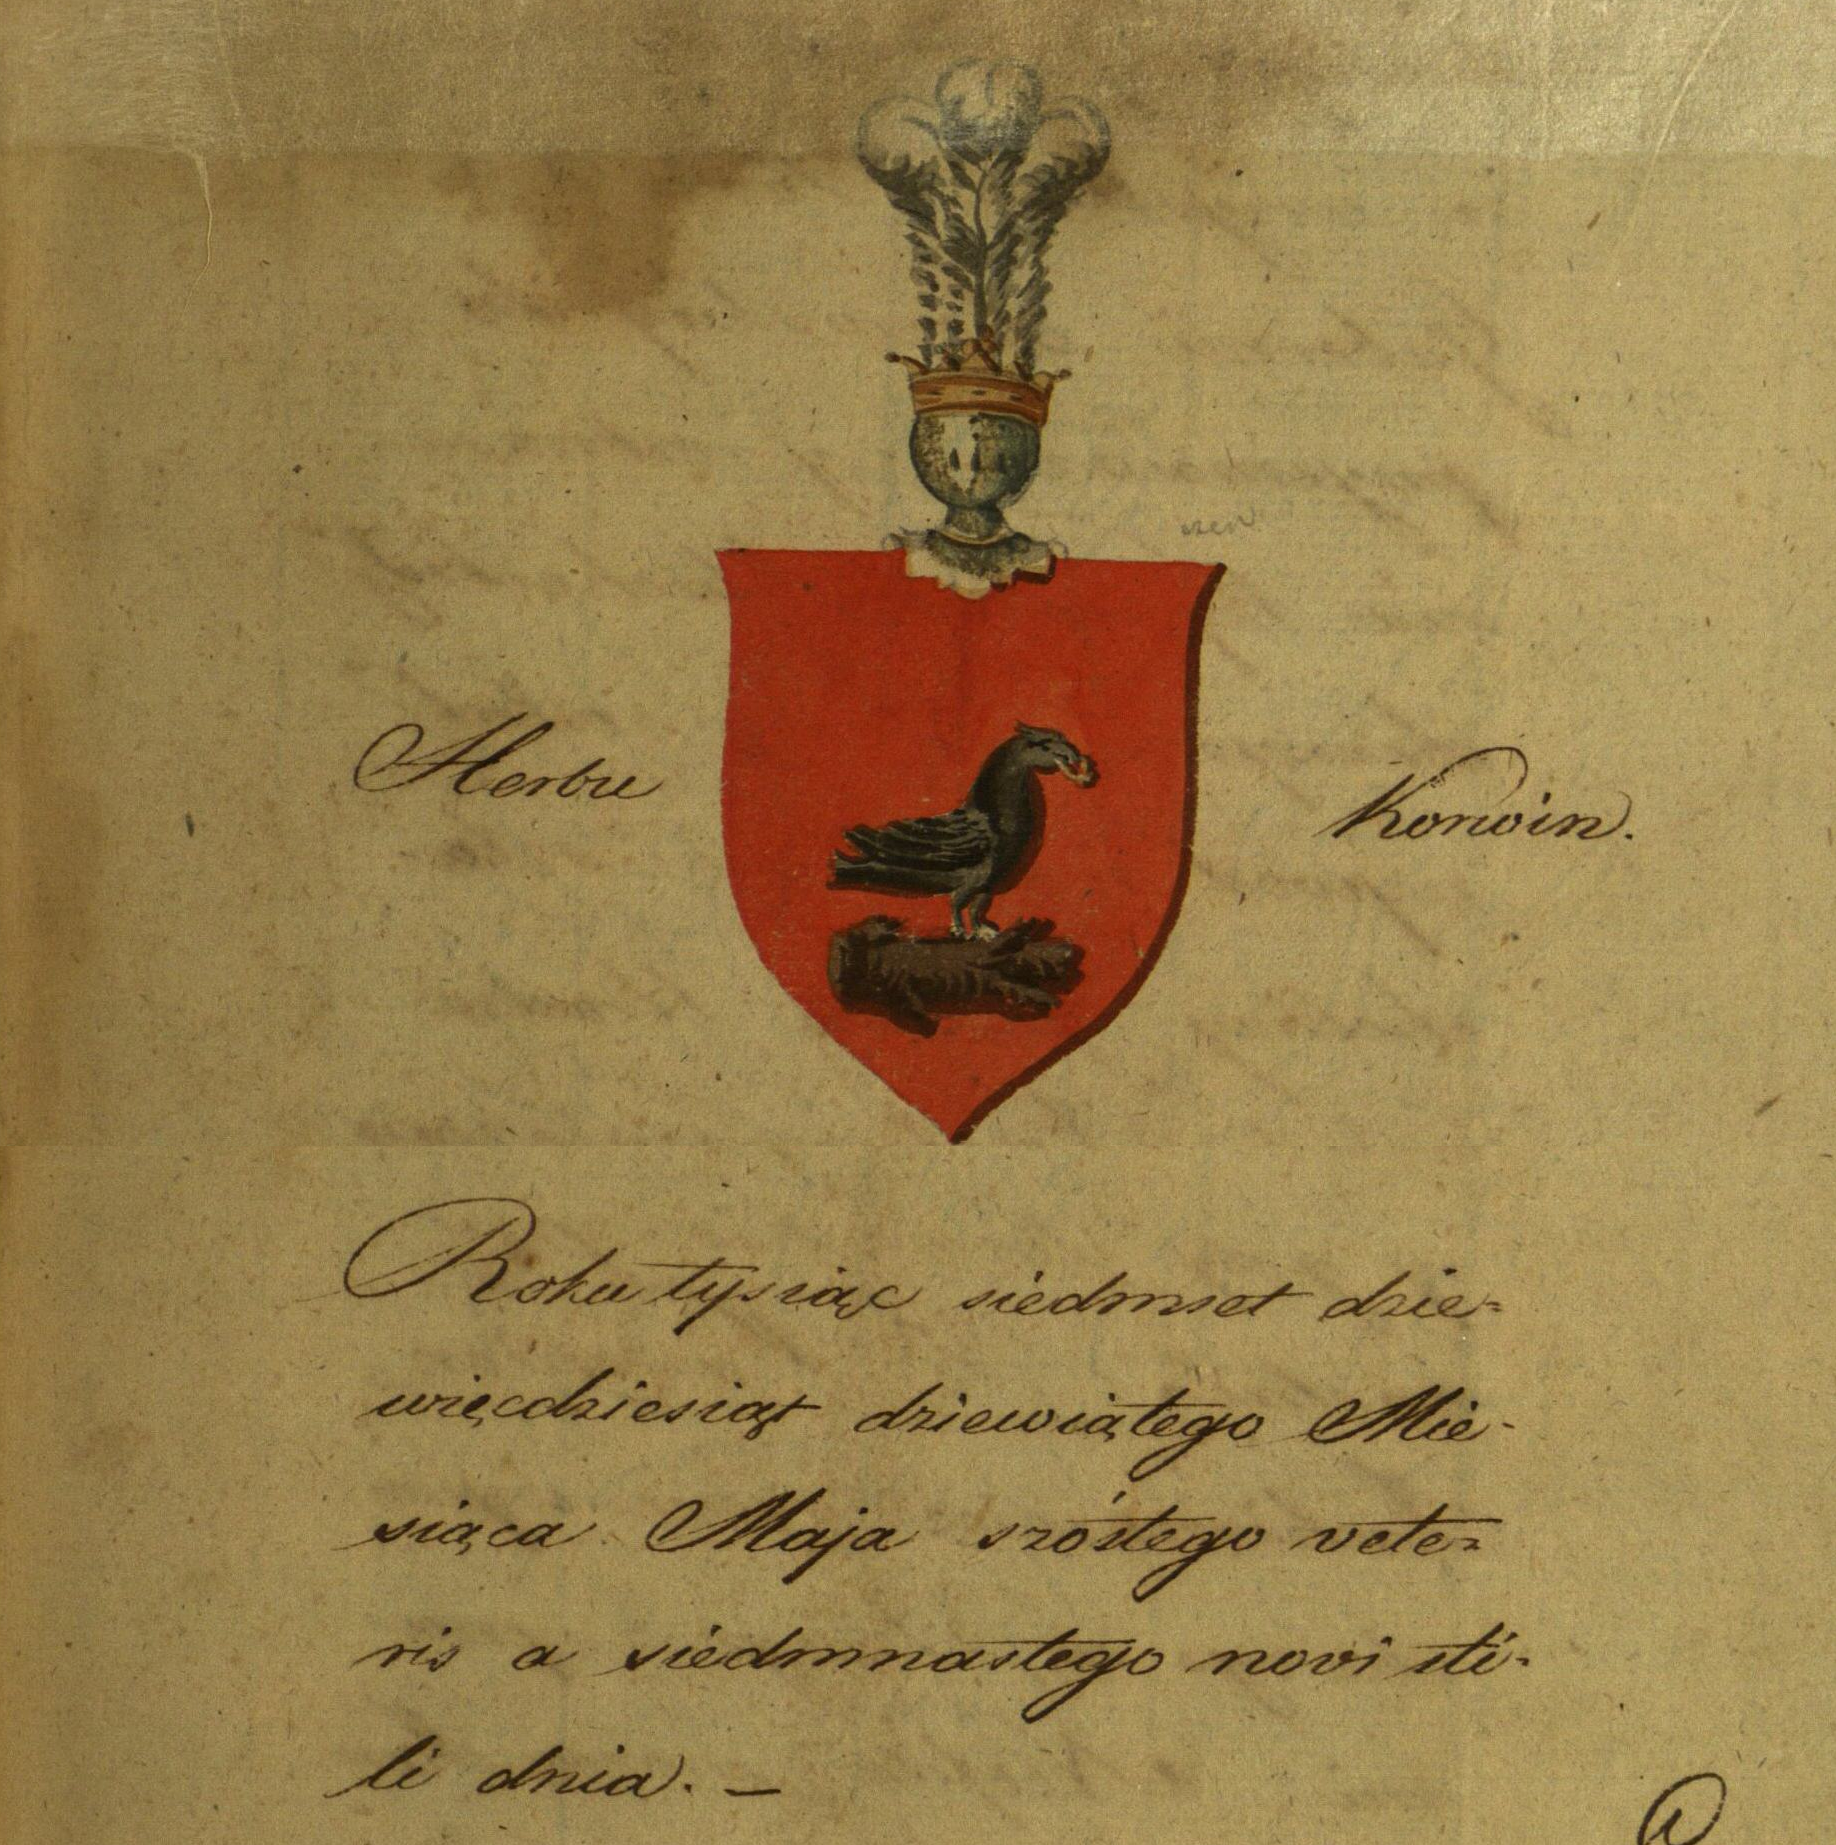 Herbu Korwin.
Roku tysiąc siedmset dzie=
więcdziesiąt dziewiątego Mie-
siąca Maja szóstego vete=
ris a siedmnastego novi sti-
li dnia. —